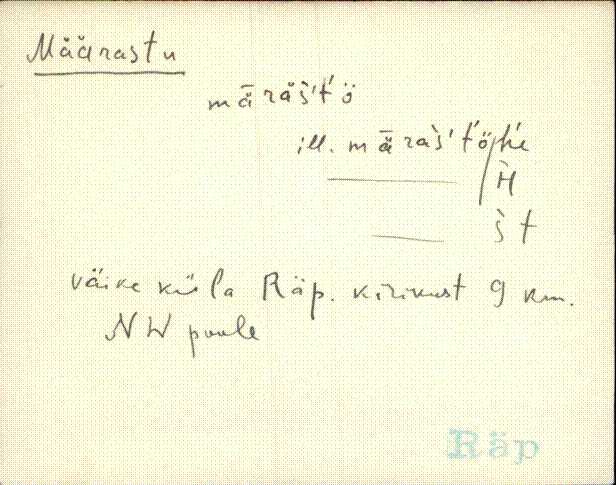 Määrastu
mǟräśt́ö
ill. mǟraśt́ö/h́e
H̀
s̀t
väike küla Räp. kirikust 9 km.
NW poole
Räp